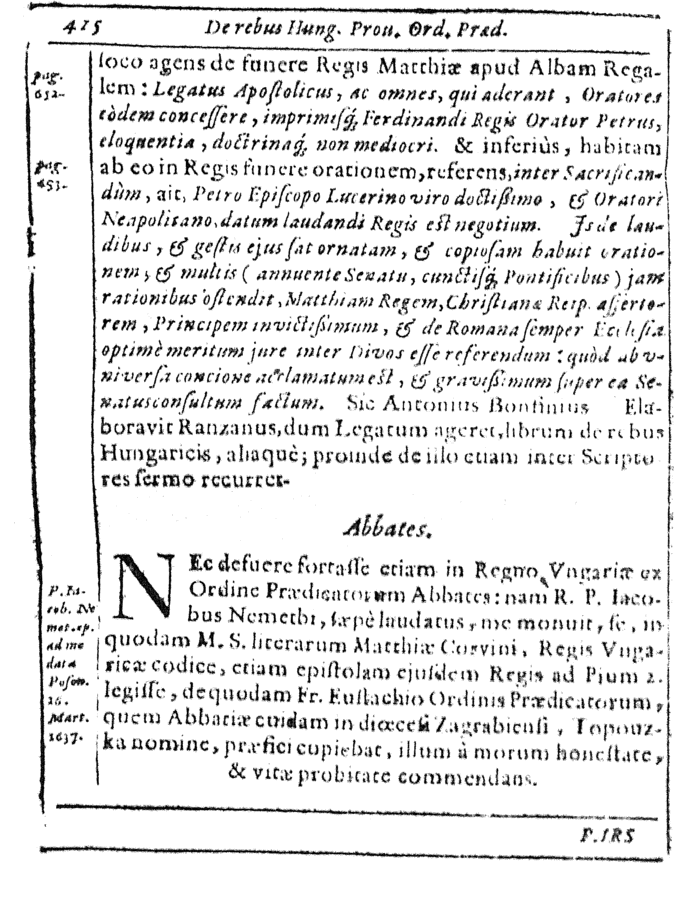 415 De rebus Hung. Prou. Ord. Præd.
pag.
652.
loco agens de funere Regis Matthiæ apud Albam Rega-
lem : Legatus Apoſtolicus, ac omnes, qui aderant, Oratores
eòdem conceſſere, imprimiſq́; Ferdinandi Regis Orator Petrus,
eloquentia, doctrinaq́; non mediocri. & inferiùs, habitam
pag.
653.
ab eo in Regis funere orationem, referens, inter Sacrifican-
dùm, ait, Petro Epiſcopo Lucerino viro doctiſſimo, & Oratori
Neapolitano, datum laudandi Regis eſt negotium. Is de lau-
dibus, & geſtis ejus ſat ornatam, & copioſam habuit oratio-
nem, & multis ( annuente Senatu, cunctiſq́; Pontificibus ) jam
rationibus oſtendit, Matthiam Regem, Chriſtianæ Reip. aſſerto-
rem, Principem invictiſſimum, & de Romana ſemper Eccleſia
optimè meritum jure inter Divos eſſe referendum : quòd ab v-
niverſa concione acclamatum eſt, & graviſſimum ſuper ea Se-
natusconſultum factum. Sic Antonius Bonfinius Ela-
boravit Ranzanus, dum Legatum ageret, librum de rebus
Hungaricis, aliaquè; proinde de illo etiam inter Scripto
res ſermo recurret-
Abbates.
NEc defuere fortaſſe etiam in Regno Vngariæ ex
Ordine Prædicatorum Abbates : nam R. P. Iaco-
bus Nemethi, ſæpè laudatus, me monuit, ſe, in
quodam M. S. literarum Matthiæ Corvini, Regis Vnga-
ricæ codice, etiam epiſtolam ejuſdem Regis ad Pium 2.
legiſſe, de quodam Fr. Euſtachio Ordinis Prædicatorum,
quem Abbatiæ cuidam in diœceſi Zagrabienſi, Topouz-
ka nomine, præfici cupiebat, illum à morum honeſtate,
& vitæ probitate commendans.
P. Ia-
cob. Ne
met. ep.
ad me
data
Poſon.
16.
Mart.
1637.
P. IRS